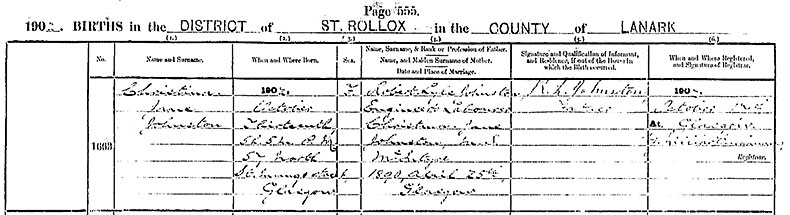 Page 555.
190 BIRTHS in the DISTRICT of ST. ROLLOX in the COUNTY of LANARK
(1.) (2.) (3.) (4.) (5.) (6.)
No. Name and Surname. When and Where Born. Sex. Name, Surname, & Rank or Profession of Father. Name, and Maiden Surname of Mother. Date and Place of Marriage. Signature and Qualification of Informant, and Residence, if out of the House in which the Birth occurred. When and Where Registered, and Signature of Registrar.
Christina 190 F Robert Johnston R. L. Johnston 190
Jane October Engineer's Labourer Father October
Johnston Thirteenth Christina Jane At Glasgow
Johnston
1663 57 North McIntyre Registrar.
St. Mungo Street, April 25th
Glasgow Glasgow